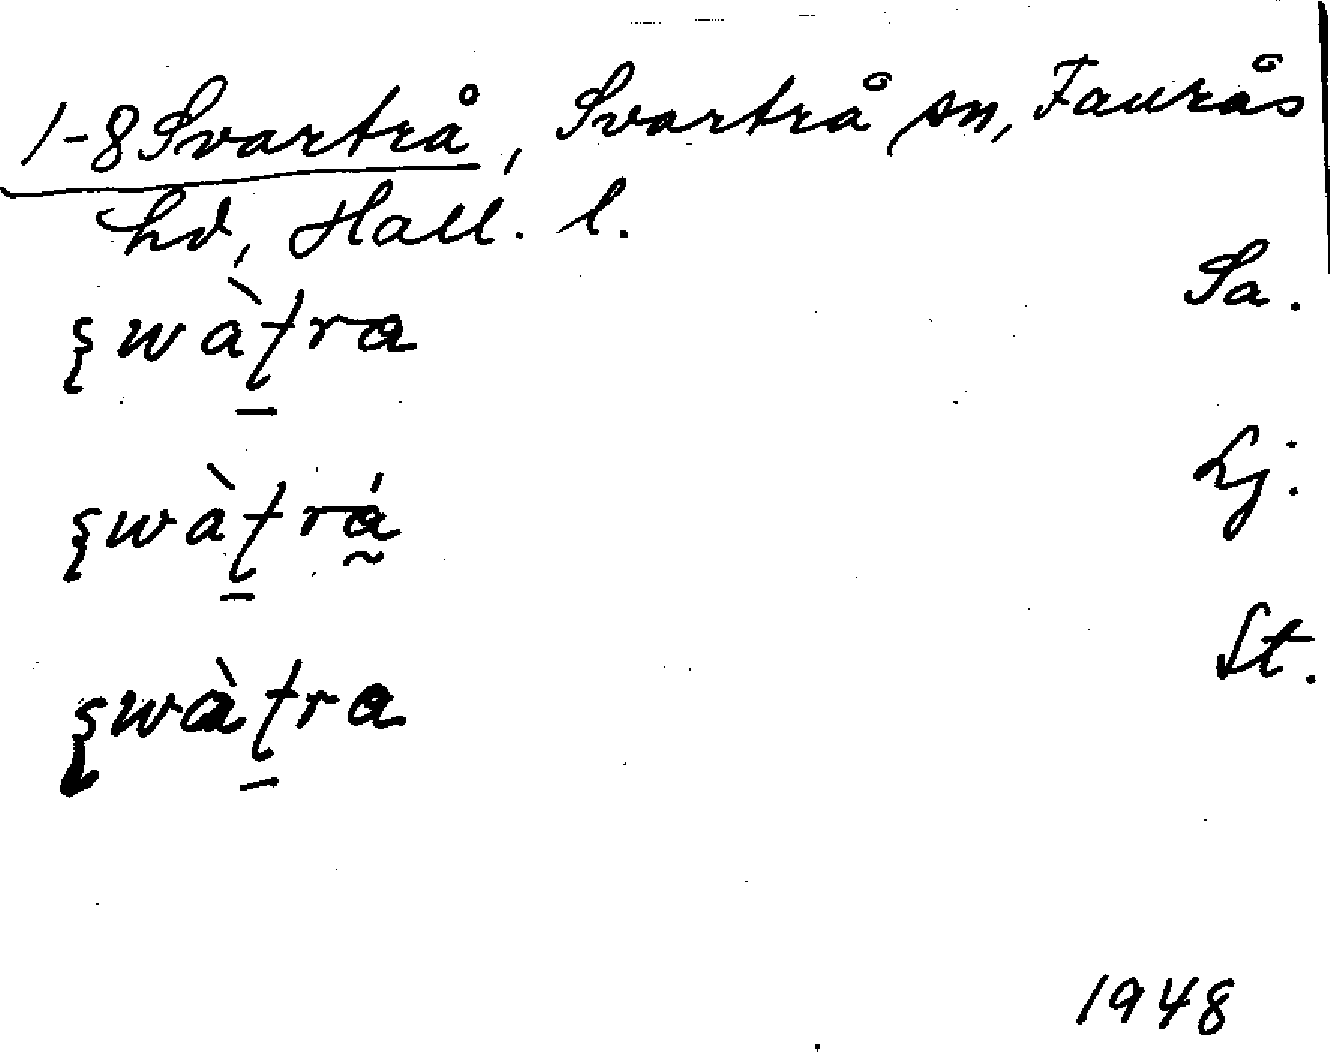 1-8 Svartrå, Svartrå sn, Faurås
hd, Hall. l.
Sa.
ʂwàʈ̠ra
Lj.
ʂwàʈ̠rá̰
St.
ʂwàʈ̠ra
1948